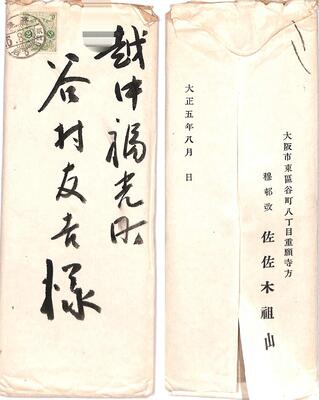 越中福光町
谷村友吉様
大正五年八月 日
大阪市東區谷町八丁目重願寺方
穆邨改 佐佐木祖山